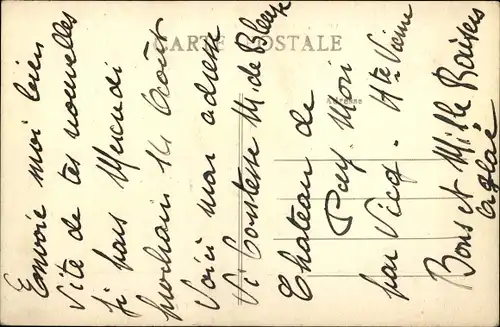 CARTE POSTALE
Adresse
Envoie moi bien
vite de tes nouvelles
je pars Mercredi
prochain 14 Août
Voici mon adresse
Vicomtesse M. de
Château de
Puy Mori
par Vicq. Hte Vienne
Bons et Mille Baisers